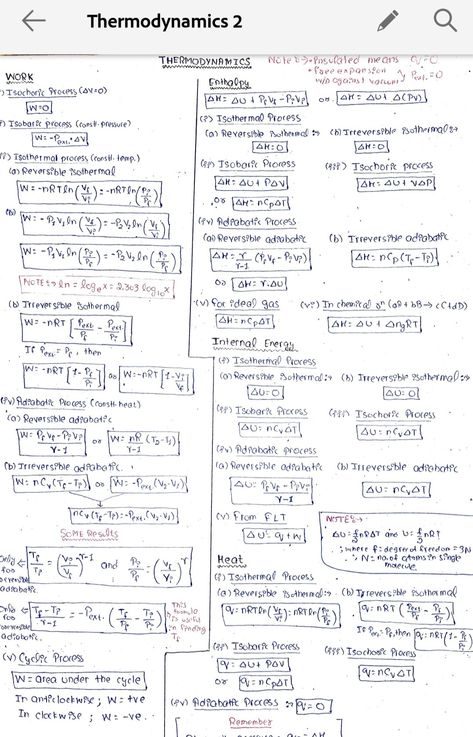 Thermodynamics 2
THERMODYNAMICS
Note :→ • Insulated means q=0
• Free expansion } Pext.=0
WORK
i) Isochoric Process (ΔV=0)
W=0
Isobaric process (const. pressure)
W=-Pext.ΔV
Isothermal process (const. temp.)
(a) Reversible isothermal
W=-nRT ln(Vf/Vi)=-nRT ln(Pi/Pf)
(b)
W=-PiVi ln(Vf/Vi)
W=-PiVi ln(Pi/Pf)
NOTE :→ ln = logex = 2.303 log10x
(b) Irreversible isothermal
W=-nRT[Pext/Pf - Pext/Pi]
If Pext=Pf, then
W=-nRT[1-Pf/Pi] or W=-nRT[1-Vi/Vf]
(iv) Adiabatic Process (const. heat)
(a) Reversible adiabatic
W=PfVf-PiVi/γ-1 or W=nR/γ-1 (T2-T1)
(b) Irreversible adiabatic.
W=nCv(Tf-Ti) or W=-Pext.(V2-V1)
nCv(Tf-Ti)=-Pext.(V2-V1)
SOME Results
Only for reversible adiabatic.
Tf/Ti=(Vi/Vf)γ-1 and Pi/Pf=(Vf/Vi)γ
Only for irreversible adiabatic.
Tf-Ti/γ-1=-Pext.(Tf/Pf - Ti/Pi)
This formula is useful in finding Tf
(v) Cyclic Process
W=area under the cycle
In anticlockwise; W=+ve
In clockwise; W=-ve.
Enthalpy
ΔH=ΔU+PfVf-PiVi or ΔH=ΔU+Δ(PV)
(i) Isothermal Process
(a) Reversible isothermal :→ (b) Irreversible isothermal :→
ΔH=0 ΔH=0
(ii) Isobaric Process (iii) Isochoric process
ΔH=ΔU+PΔV ΔH=ΔU+VΔP
or ΔH=nCpΔT
(iv) Adiabatic Process
(a) Reversible adiabatic (b) Irreversible adiabatic
ΔH=γ/γ-1 (PfVf-PiVi) ΔH=nCp(Tf-Ti)
or ΔH=γ.ΔU
(v) For ideal gas (vi) In chemical (aA+bB→cC+dD)
ΔH=nCpΔT ΔH=ΔU+ΔngRT
Internal Energy
(i) Isothermal Process
(a) Reversible isothermal :→ (b) Irreversible isothermal :→
ΔU=0 ΔU=0
(ii) Isobaric Process (iii) Isochoric Process
ΔU=nCvΔT ΔU=nCvΔT
(iv) Adiabatic process
(a) Reversible adiabatic (b) Irreversible adiabatic
ΔU=PfVf-PiVi/γ-1 ΔU=nCvΔT
(v) From FLT
ΔU=q+w
NOTE :→
ΔU=f/2nRΔT and U=f/2nRT
; where f: degree of freedom =3N
; N=no. of atoms in single molecule.
Heat
(i) Isothermal Process
(a) Reversible isothermal :→ (b) Irreversible isothermal
q=nRT ln(Vf/Vi)=nRT ln(Pi/Pf) q=nRT(Pext/Pf - Pext/Pi)
If Pext=Pf, then q=nRT(1-Pf/Pi)
(ii) Isobaric Process (iii) Isochoric Process
q=ΔU+PΔV q=nCvΔT
or q=nCpΔT
(iv) Adiabatic Process :→ q=0
Remember